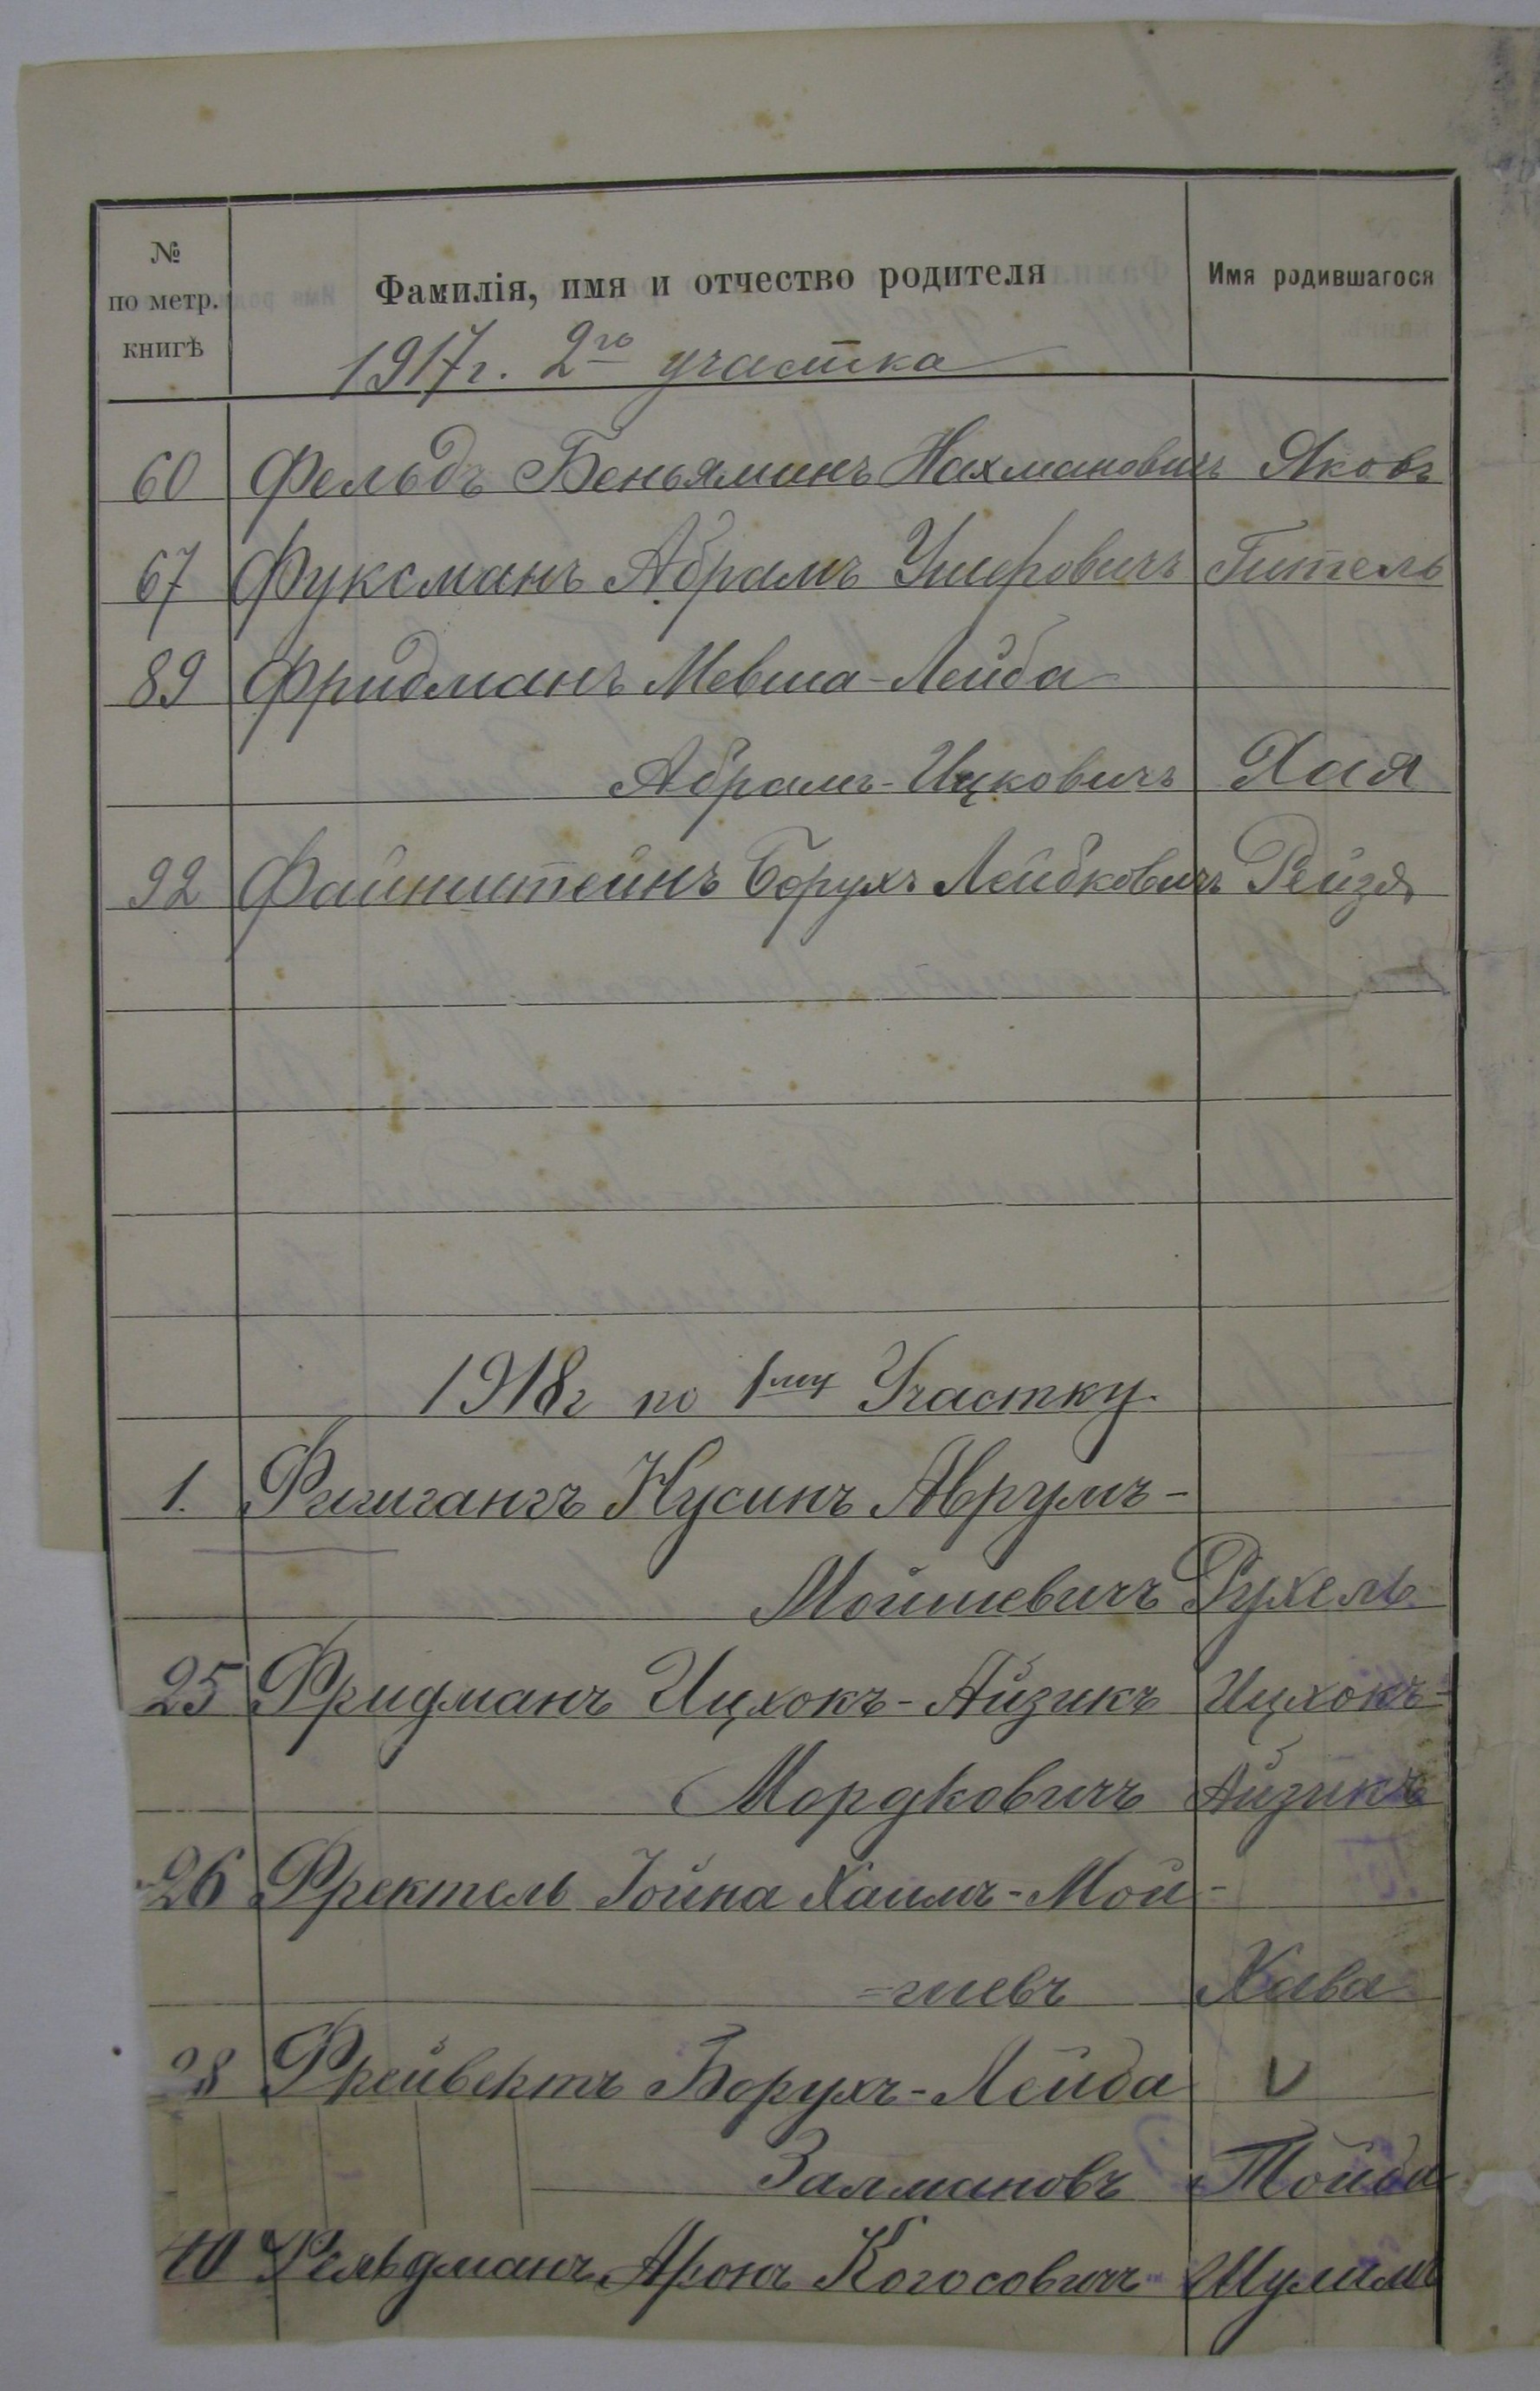 №
по метр.
книгѣ
Фамилія, имя и отчество родителя
Имя родившагося
1917г. 2го участка
60 Фельдъ Беньяминъ Нахмановичъ Яковъ
67 Фуксманъ Абрамъ Ушеровичъ Гитель
89 Фридманъ Мевша-Лейба
Абрамъ-Ицковичъ Хая
92 Файнштейнъ Борухъ Лейбковичъ Рейзя
1918г по 1му Участку.
1. Нусинъ Аврумъ-
Мойшевичъ Рухель
25 Фридманъ Ицхокъ-Айзикъ Ицхокъ-
Мордковичъ Айзикъ
26 Фректель Іойна Хаимъ-Мой-
=шевъ Хава
28 Фрейвектъ Борухъ-Лейба V
Залмановъ Тойба
40 Фельдманъ Аронъ Когосовичъ Шулимъ